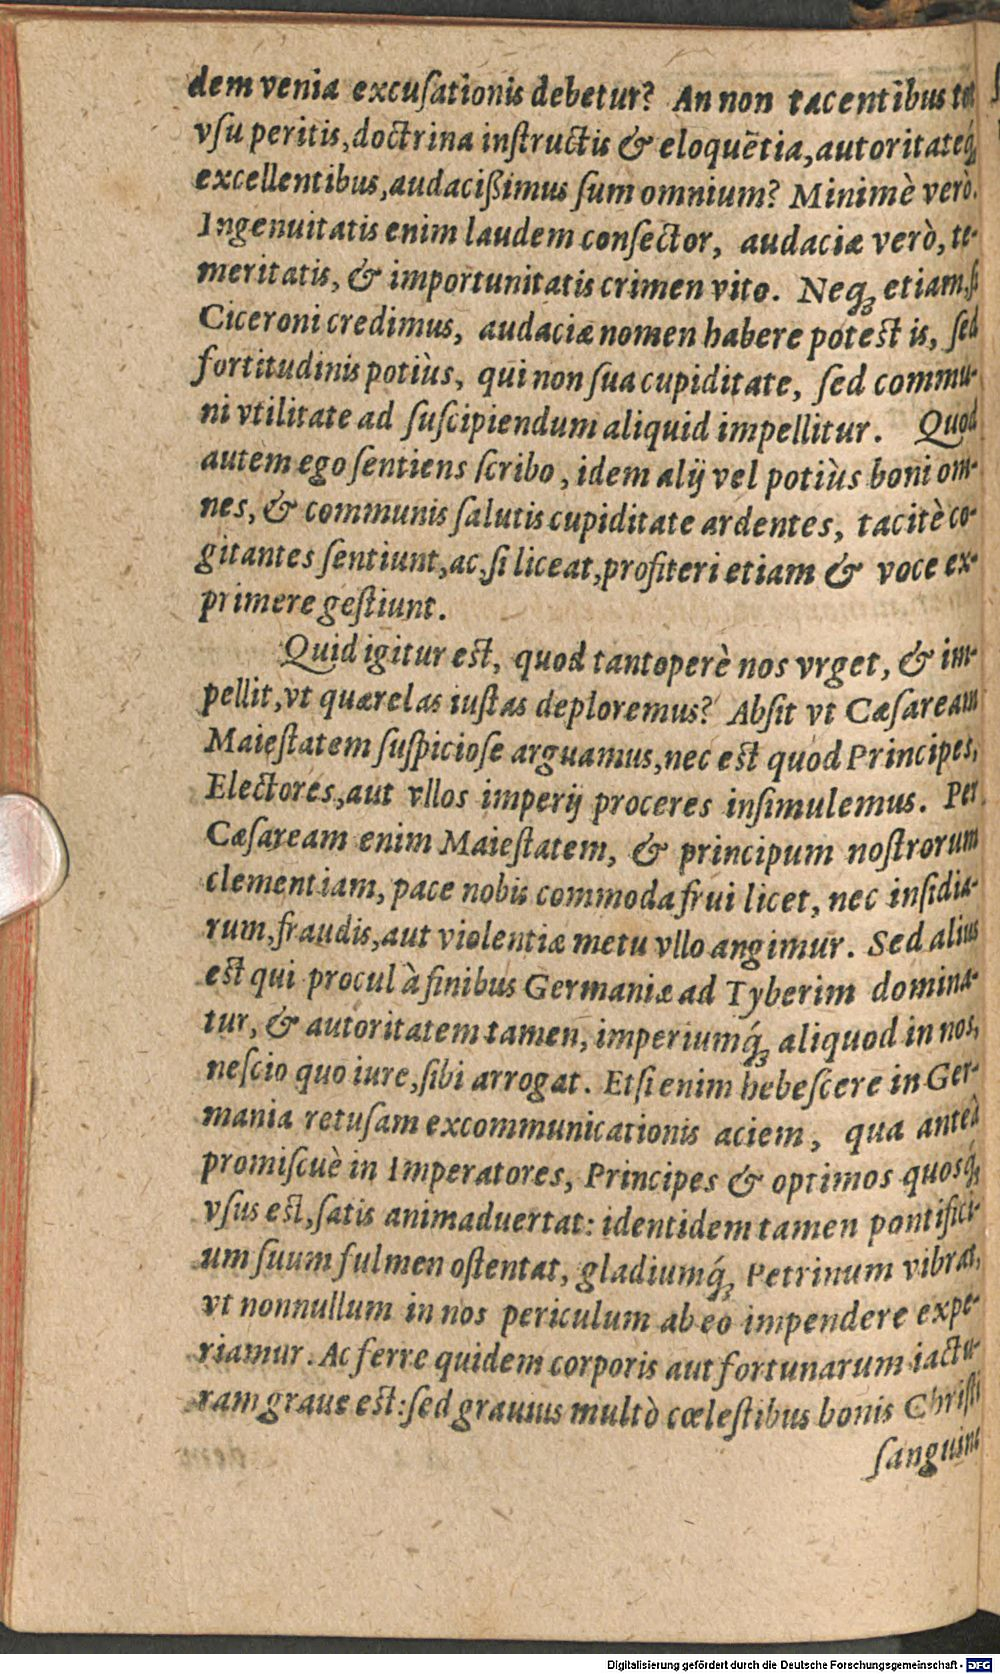 dem venia excuſationis debetur? An non tacentibus tot
vſu peritis, doctrina inſtructis & eloquẽtia, autoritateq́ꝫ
excellentibus, audacißimus ſum omnium? Minimè verò.
Ingenuitatis enim laudem conſector, audaciæ verò, te-
meritatis, & importunitatis crimen vito. Neqꝫ etiam, ſi
Ciceroni credimus, audaciæ nomen habere potest is, ſed
fortitudinis potiùs, qui non ſua cupiditate, ſed commu-
ni vtilitate ad ſuſcipiendum aliquid impellitur. Quod
autem ego ſentiens ſcribo, idem alij vel potiùs boni om-
nes, & communis ſalutis cupiditate ardentes, tacitè co-
gitantes ſentiunt, ac, ſi liceat, profiteri etiam & voce ex-
primere geſtiunt.
Quid igitur est, quod tantoperè nos vrget, & im-
pellit, vt quærelas iuſtas deploremus? Abſit vt Cæſaream
Maieſtatem ſuſpicioſe arguamus, nec est quod Principes,
Electores, aut vllos imperij proceres inſimulemus. Per
Cæſaream enim Maieſtatem, & principum noſtrorum
clementiam, pace nobis commoda frui licet, nec inſidia-
rum, fraudis, aut violentiæ metu vllo angimur. Sed alius
est qui procul à finibus Germaniæ ad Tyberim domina-
tur, & autoritatem tamen, imperiumq́ꝫ aliquod in nos,
neſcio quo iure, ſibi arrogat. Etſi enim hebeſcere in Ger-
mania retuſam excommunicationis aciem, qua anteà
promiſcuè in Imperatores, Principes & optimos quosq́ꝫ
vſus est, ſatis animaduertat: identidem tamen pontifici-
um ſuum fulmen oſtentat, gladiumq́ꝫ Petrinum vibrat,
vt nonnullum in nos periculum ab eo impendere expe-
riamur. Ac ferre quidem corporis aut fortunarum iactu-
ram graue est: ſed grauius multò cœleſtibus bonis Chriſti
ſanguine
Digitalisierung gefördert durch die Deutsche Forschungsgemeinschaft - DFG